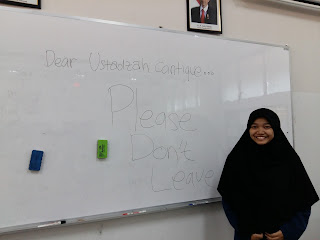 Dear Ustadzah Cantique...
Please
Don't
Leave